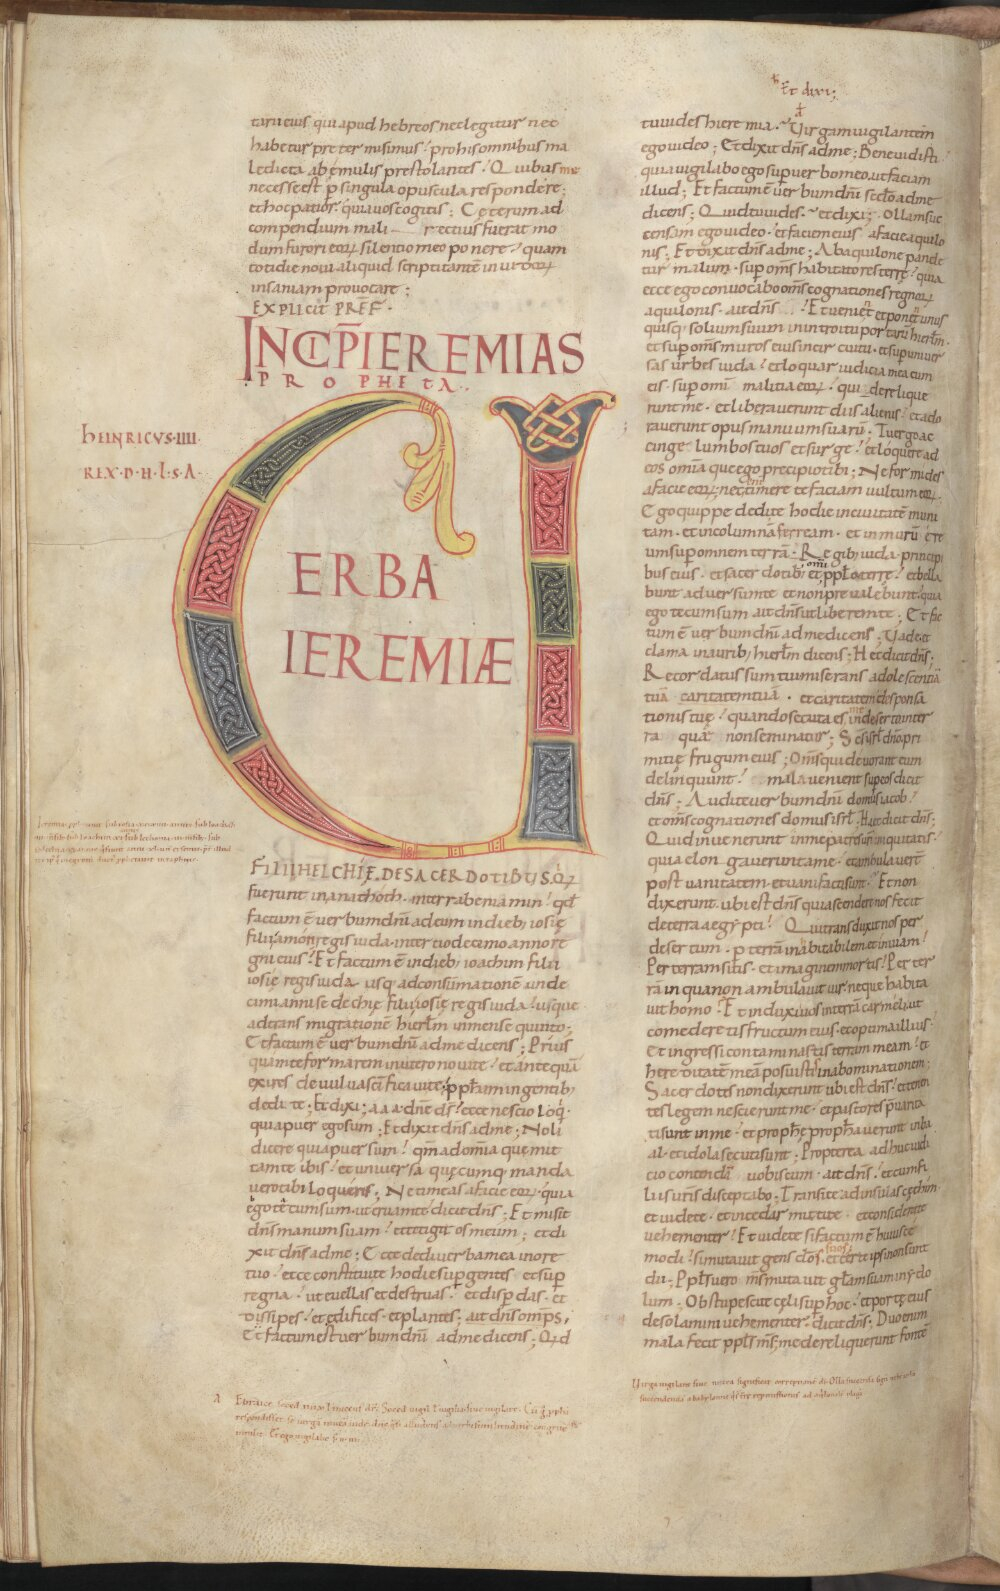 tarii eius, qui apud hebreos nec legitur nec
habetur preter misimus; pro his omnibus ma
ledicta ab emulis prestolantes; Quibus me
necesse est p singula opuscula respondere;
et hoc patior. quia vos cogitis; Ceterum ad
compendium mali rectius fuerat mo
dum furori eorum silentio meo ponere, quam
cotidie novi aliquid scriptitante invidorum
insaniam provocare;
EXPLICIT PREF.
INCIP IEREMIAS
PROPHETA.
HEINRICVS IIII
REX D H L S A
VERBA
IEREMIÆ
FILII HELCHIE DE SACERDOTIBUS Q
fuerunt in anathoth. in terra beniamin; qđ
factum ē verbum dnī ad eum in dieb; iosie
filii amon regis iuda. in tertio decimo anno re
gni eius; Et factum ē in dieb; ioachim filii
iosie regis iuda. usq; ad consummationē unde
cimi anni sedechie, filii iosie regis iuda. usque
ad transmigrationē hierlm in mense quinto;
Et factum ē verbum dnī ad me dicens; Prius
quam te formarem in utero novi te; et antequā
exires de vulva scīficavi te; pphām in gentib;
dedi te; Et dixi; a a a dnē ds; ecce nescio loq
quia puer ego sum; Et dixit dns ad me; Noli
dicere quia puer sum; qm ad omia que mit
tam te ibis; et universa quecumq; manda
vero tibi loqueris; Ne timeas a facie eorum. quia
ego tecum sum. ut eruam te dicit dns; Et misit
dns manum suam; et tetigit os meum; et di
xit dns ad me; Ecce dedi verba mea in ore
tuo; ecce constitui te hodie sup gentes et sup
regna; ut evellas et destruas; et disperdas. et
dissipes; et edifices. et plantes; ait dns omps,
Et factum est verbum dnī ad me dicens; Qđ
Et dixi;
tu vides hieremia. Virgam vigilantem
ego video; Et dixit dns ad me; Bene vidisti.
quia vigilabo ego super verbo meo. ut faciam
illud; Et factum ē verbum dnī scđo ad me
dicens; Quid tu vides. et dixi; Ollam suc
censam ego video. et faciem eius a facie aquilo
nis; Et dixit dns ad me; Ab aquilone pande
tur malum. sup oms habitatores terre; quia
ecce ego convocabo oms cognationes regnorum
aquilonis. ait dns; Et venient et ponet unus
quisq; solium suum in introitu portarum hierlm.
et sup oms muros eius in circuitu. et sup univer
sas urbes iuda; et loquar iudicia mea cum
eis. sup omi malitia eorum. qui derelique
runt me. et libaverunt diis alienis; et ado
raverunt opus manuum suarū; Tu ergo ac
cinge lumbos tuos et surge; et loquere ad
eos omia que ego precipio tibi; Ne formides
a facie eorum; nec timere te faciam vultum eorum.
Ego quippe dedi te hodie in civitatē muni
tam. et in columnā ferream. et in murū ere
um sup omnem terrā; Regib; iuda. principi
bus eius. et sacerdotib; et pplo terre; et bella
bunt adversum te et non prevalebunt. quia
ego tecum sum ait dns ut liberem te; Et fac
tum ē verbum dnī ad me dicens; Vade et
clama in aurib; hierlm dicens; Hec dicit dns;
Recordatus sum tui miserans adolescentiā
tuā caritatem tuā. et caritatem desponsa
tionis tue; quando secuta es me in deserto in ter
ra quā non seminatur; Scs isrl dno. pri
mitie frugum eius; Oms qui devorant eum
delinquunt; mala venient sup eos dicit
dns; Audite verbum dnī domus iacob;
et oms cognationes domus isrl; Hec dicit dns;
Quid invenerunt in me patres vrī iniquitatis;
quia elongaverunt a me. et ambulaverunt
post vanitatem. et vani facti sunt; Et non
dixerunt. ubi est dns qui ascendere nos fecit
de terra aegypti; Qui transduxit nos per
desertum. p terrā inhabitabilem et inviam;
Per terram sitis. et imaginem mortis; Per ter
rā in qua non ambulavit vir. neque habita
vit homo; Et induxi vos in terrā carmeli. ut
comederetis fructum eius. et optima illius;
Et ingressi contaminastis terram meam; et
hereditatē meā posuistis in abominationem;
Sacerdotes non dixerunt ubi est dns; et tenen
tes legem nescierunt me. et pastores prevarica
ti sunt in me. et prophe prophaverunt in ba
al. et idola secuti sunt; Propterea adhuc iudi
cio contendā vobiscum. ait dns; et cum fi
liis vris disceptabo; Transite ad insulas cethim.
et videte. et in cedar mittite. et considerate
vehementer; Et videte si factum ē huiusce
modi; si mutavit gens deos suos. et certe ipsi non sunt
dii; Pplus vero ms mutavit gloriam suam in ydo
lum; Obstupescite celi sup hoc; et porte eius
desolamini vehementer; dicit dns; Duo enim
mala fecit ppls ms; me dereliquerunt fontē